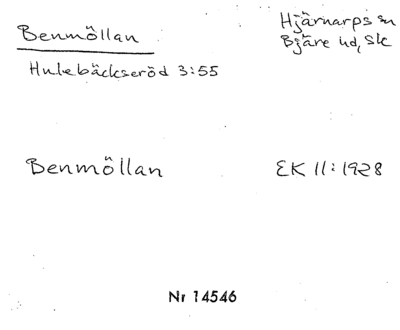 Benmöllan
Hjärnarps sn
Bjäre hd, Sk
Hulebäckseröd 3:55
Benmöllan
EK 11:1928
Nr 14546